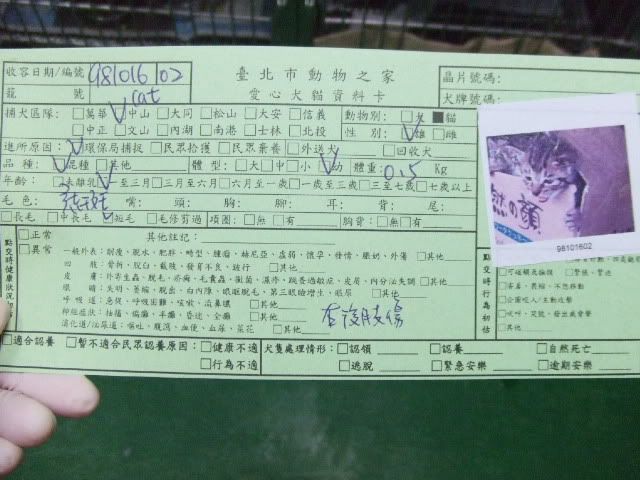 收容日期/編號 981016 02 臺北市動物之家 晶片號碼:
籠 號 cat 愛心犬貓資料卡 犬牌號碼:
捕犬區隊: □萬華 ☑中山 □大同 □松山 □大安 □信義 動物別: □犬 ■貓
□中正 □文山 □內湖 □南港 □士林 □北投 性 別: ☑雄 □雌
進所原因: ☑環保局捕捉 □民眾拾獲 □民眾棄養 □外送犬 □回收犬
品 種: ☑混種 □其他 體 型: □大 □中 □小 ☑幼 體重: 0.5 Kg
年齡: □未離乳 ☑一至三月 □三月至六月 □六月至一歲 □一歲至三歲 □三至七歲 □七歲以上
毛 色: 虎斑 嘴: 頭: 胸: 腳: 耳: 背: 尾:
□長毛 □中長毛 ☑短毛 □毛修剪過 項圈: □無 □有 胸背: □無 □有
然の顏
98101602
點交時健康狀況初
□正常 其他註記:
□異常 一般外表: 削瘦、脫水、肥胖、畸型、腫瘤、赫尼亞、虛弱、懷孕、發情、哺奶、外傷 □其他
四 肢: 骨折、脫臼、截肢、發育不良、跛行 □其他
皮 膚: 外寄生蟲、脫毛、疥癬、毛囊蟲、黴菌、濕疹、跳蚤過敏症、皮屑、內分泌失調 □其他
眼 睛: 失明、萎縮、脫出、白內障、眼瞼脫毛、第三眼瞼增生、眼屎 □其他
呼 吸 道: 急促、呼吸困難、咳嗽、流鼻膿 □其他
神經症狀: 抽搐、偏癱、半癱、昏迷、全癱 □其他
消化道/泌尿道: 嘔吐、腹瀉、血便、血尿、尿花 □其他
右後肢傷
點交時行為初估
□可碰觸及檢測 □緊張、緊迫
□害羞、畏縮、不想移動
□企圖咬人/主動攻擊
□吠叫、哭號、發出威脅聲
□其他
□適合認養 □暫不適合民眾認養原因: □健康不適 犬隻處理情形: □認領 □認養 □自然死亡
□行為不適 □逃脫 □緊急安樂 □逾期安樂